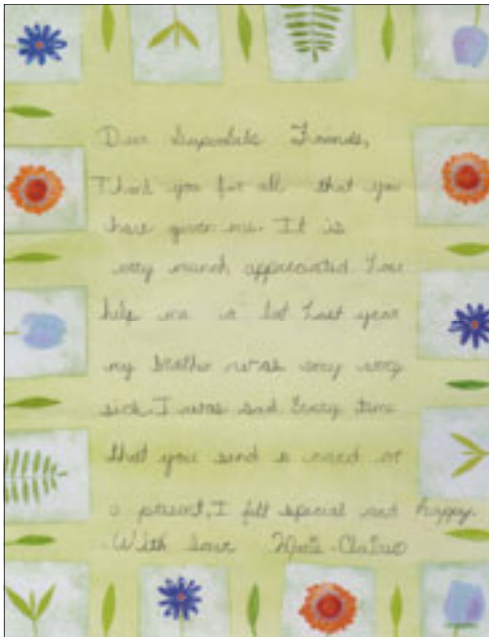 Dear Supersibs Friends,
Thank you for all that you
have given me. It is
very much appreciated. You
help me a lot. Last year
my brother was very very
sick. I was sad. Every time
that you send a card or
a present, I felt special and happy.
With love Marie-Claire